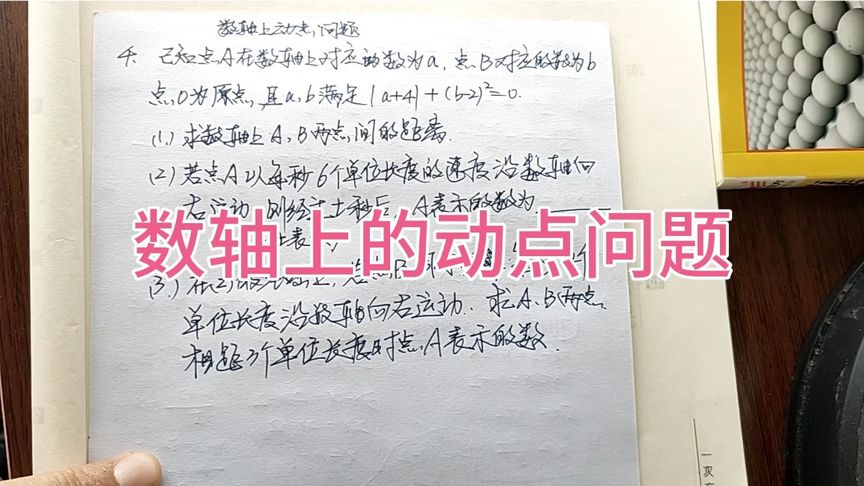 数轴上动点问题
4. 已知点A在数轴上对应的数为a,点B对应的数为b
点O为原点,且a,b满足|a+4|+(b-2)²=0.
(1.)求数轴上A、B两点间的距离.
(2)若点A以每秒6个单位长度的速度沿数轴向
右运动,则经过t秒后,A表示的数为
数轴上的动点问题
(3.)在(2)
单位长度沿数轴向右运动.求A、B两点
相距3个单位长度时点A表示的数.
一次